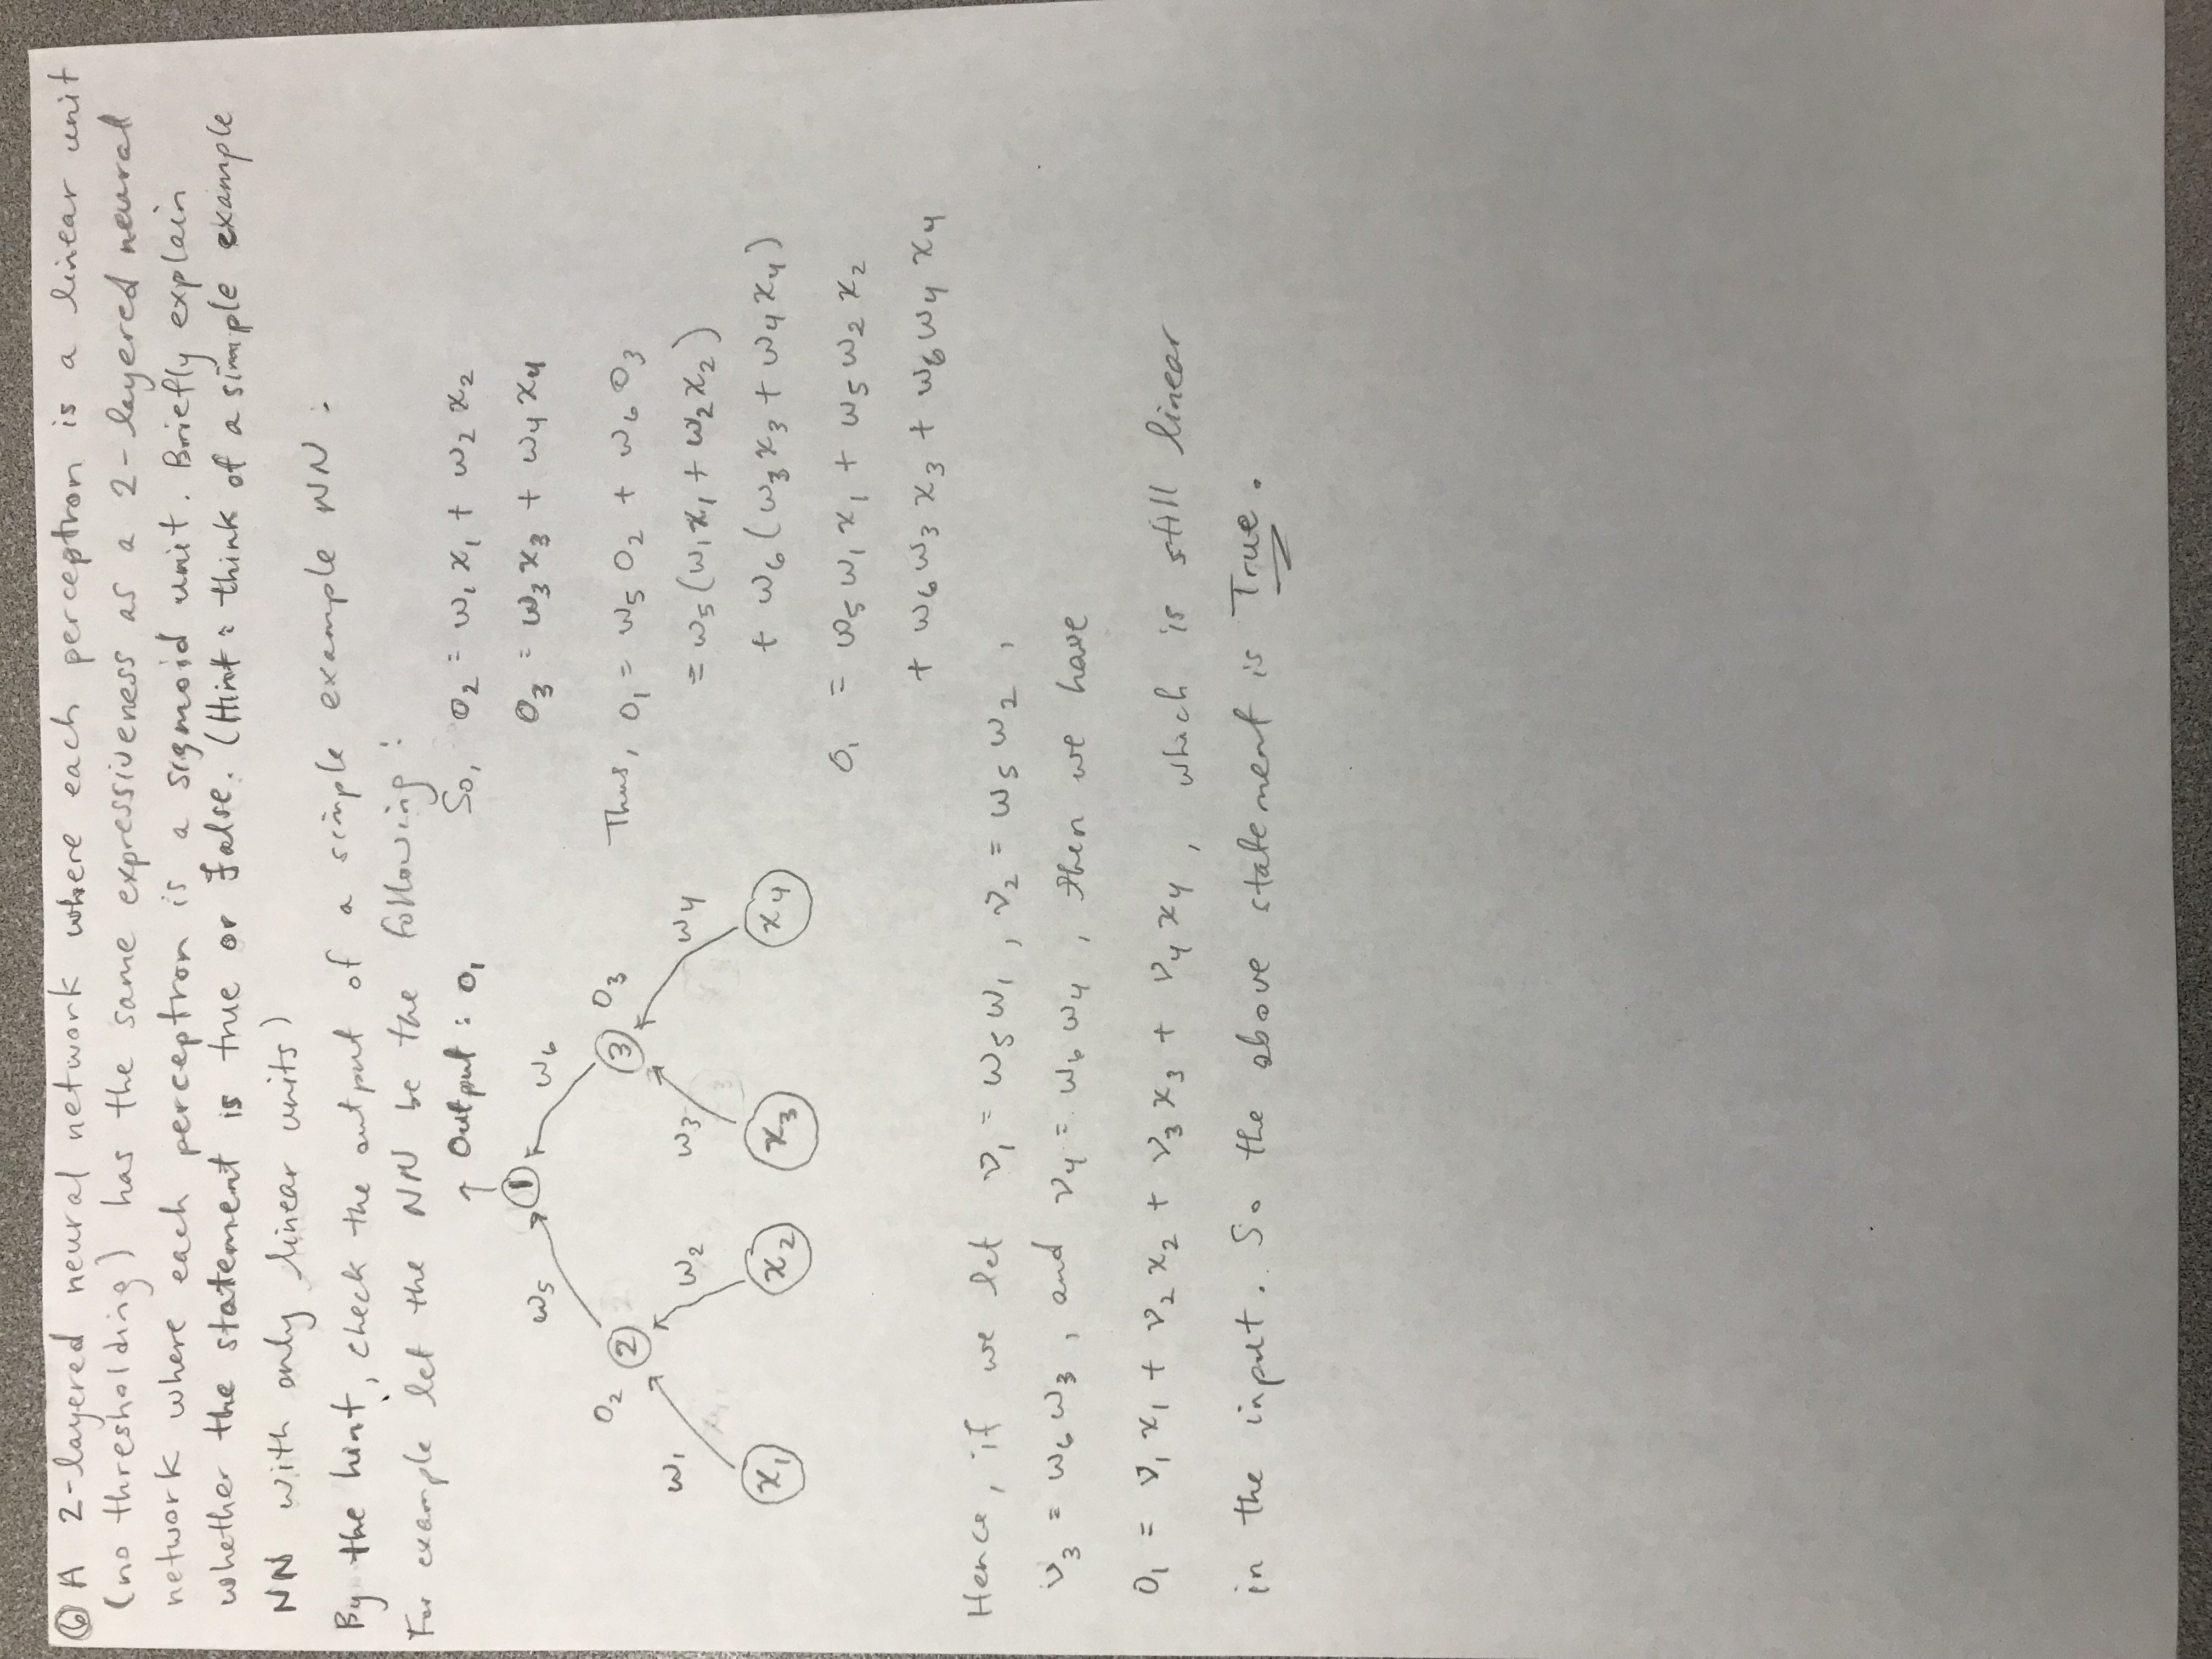 ⑥ A 2-layered neural network where each perceptron is a linear unit
(no thresholding) has the same expressiveness as a 2-layered neural
network where each perceptron is a sigmoid unit. Briefly explain
whether the statement is true or false. (Hint: think of a simple example
NN with only linear units)
By the hint, check the output of a simple example NN:
For example let the NN be the following:
↑ Output: O₁
①
w₅ w₆
O₂ ② ③ O₃
w₁ w₂ w₃ w₄
x₁ x₂ x₃ x₄
So, O₂ = w₁x₁ + w₂x₂
O₃ = w₃x₃ + w₄x₄
Thus, O₁ = w₅O₂ + w₆O₃
= w₅(w₁x₁ + w₂x₂)
+ w₆(w₃x₃ + w₄x₄)
O₁ = w₅w₁x₁ + w₅w₂x₂
+ w₆w₃x₃ + w₆w₄x₄
Hence, if we let v₁ = w₅w₁, v₂ = w₅w₂,
v₃ = w₆w₃, and v₄ = w₆w₄, then we have
O₁ = v₁x₁ + v₂x₂ + v₃x₃ + v₄x₄, which is still linear
in the input. So the above statement is True.